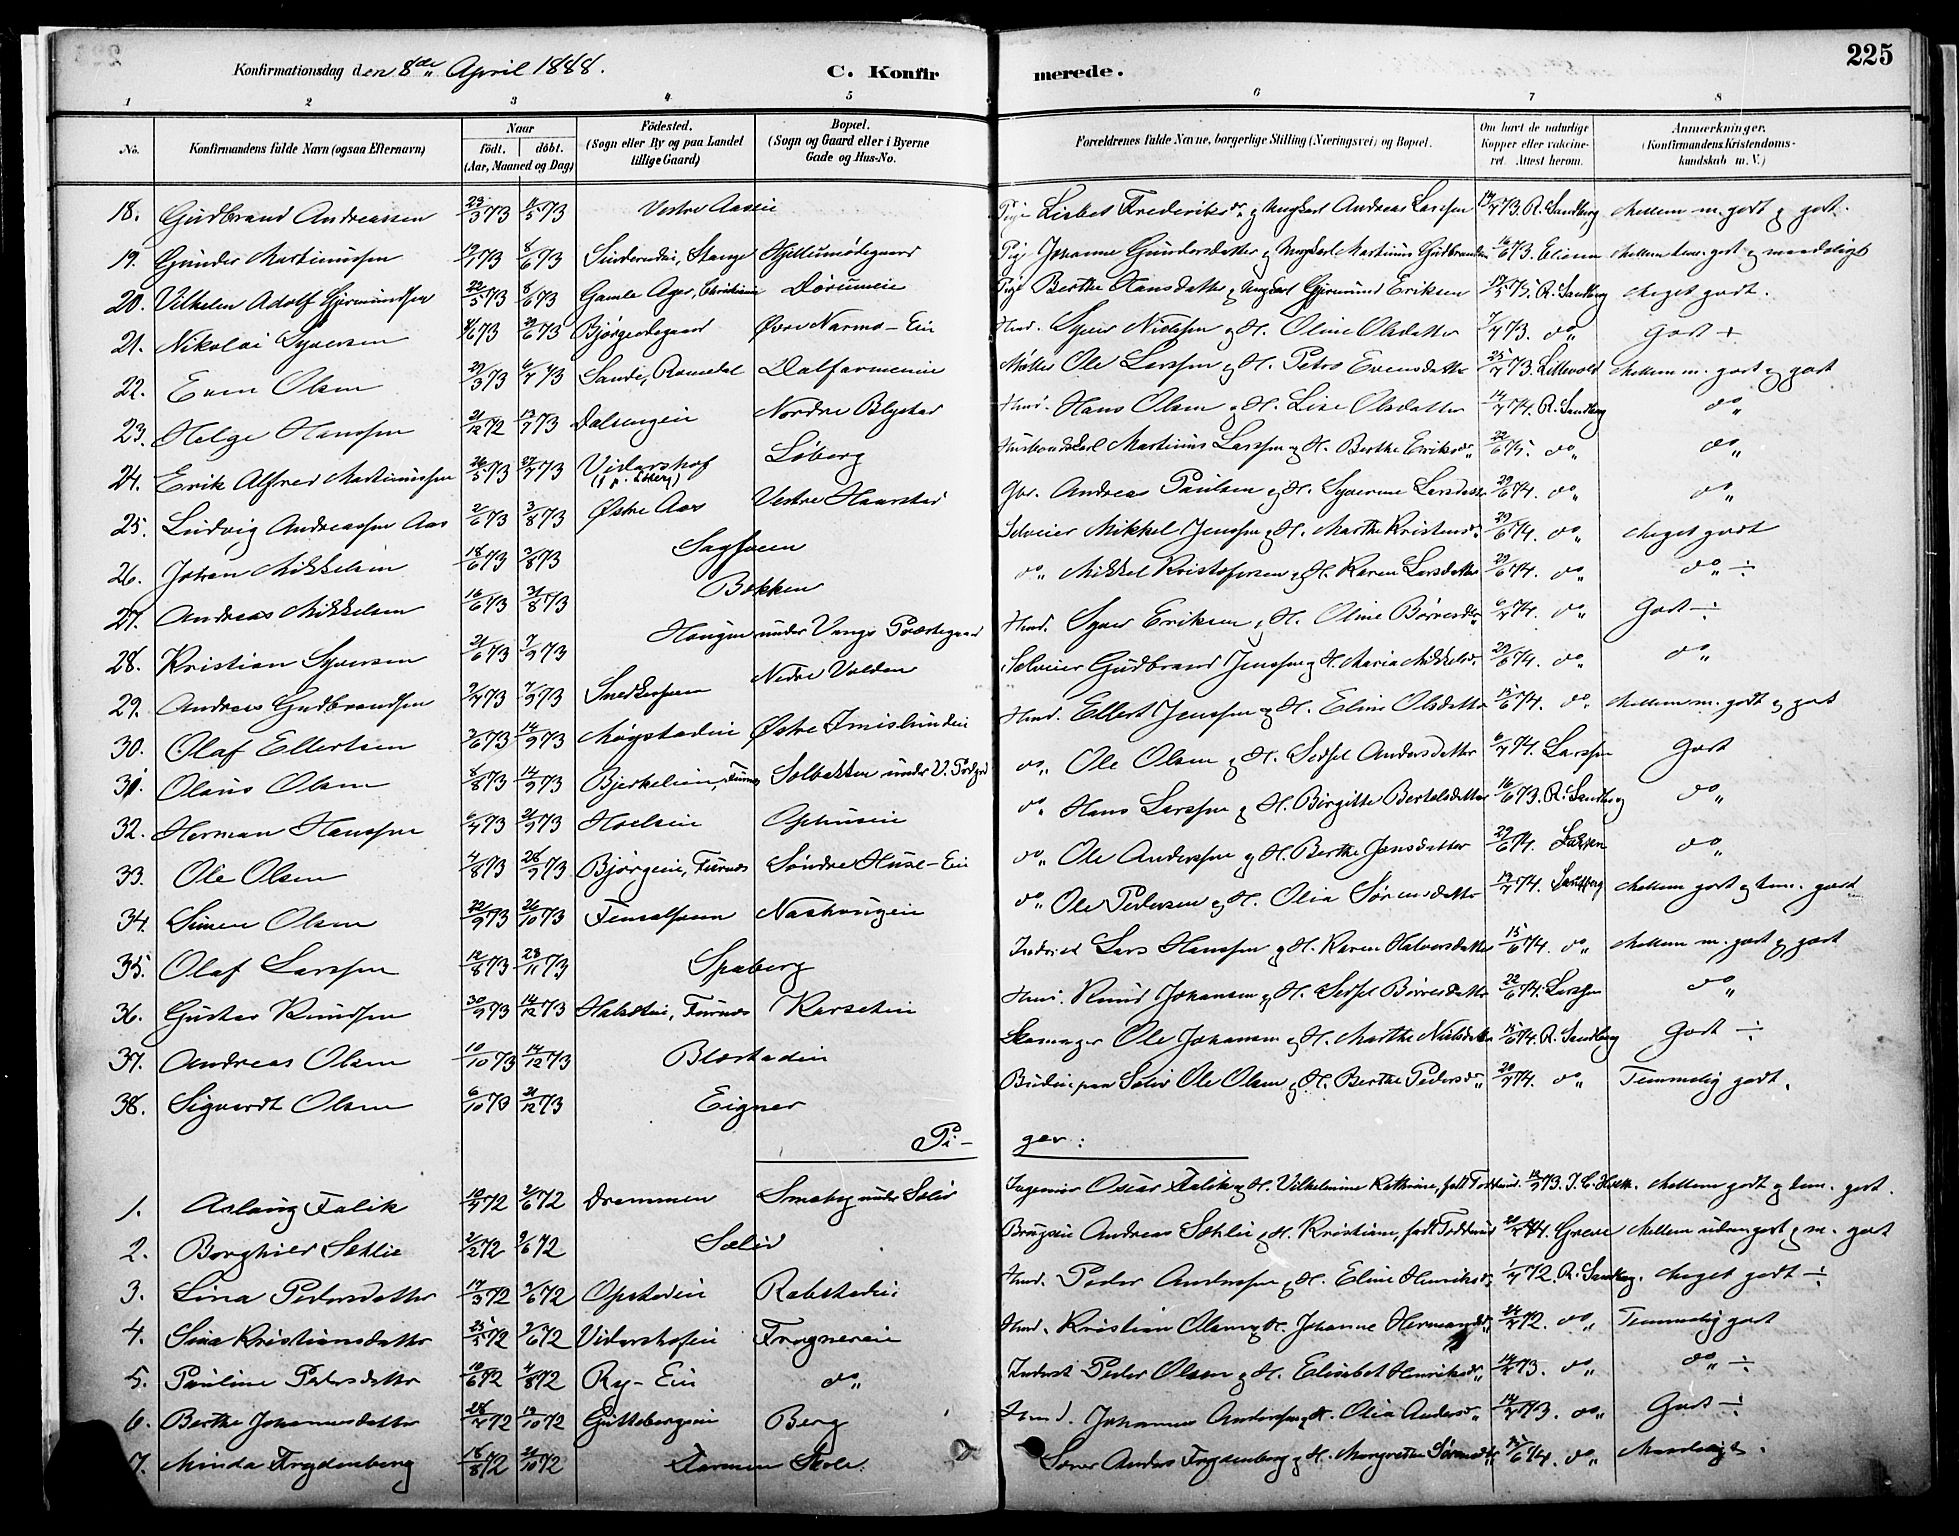 225
Konfirmationsdag den 8de April 1888.
C. Konfirmerede.
1 2 3 4 5 6 7 8
No.
Konfirmandens fulde Navn (ogsaa Efternavn)
Naar
födt. döbt.
(Aar, Maaned og Dag)
Födested.
(Sogn eller By og paa Landet
tillige Gaard)
Bopæl.
(Sogn og Gaard eller i Byerne
Gade og Hus-No.
Forældrenes fulde Navne, borgerlige Stilling (Næringsvei) og Bopæl.
Om havt de naturlige
Kopper eller vakcine-
ret. Attest herom.
Anmærkninger.
(Konfirmandens Kristendoms-
kundskab m. V.)
18. Gudbrand Andreassen 23/3 73 11/5 73 Vestre Aaseie Pige Lisbet Frederiksdr. og Ungkarl Andreas Larssen 17/7 73. R. Sandberg Mellem m. godt og godt.
19. Gunder Martinussen 12/1 73 8/6 73 Stange Hjellumødegaard Pige Johanne Gundersdatter og Ungkarl Martinus Gudbrandsen 16/6 73. Mellem tem. godt og maadeligt
20. Vilhelm Adolf Gjermundsen 22/5 73 8/6 73 Gamle Ager, Christiania Dørumeie Pige Berthe Hansdatter og Ungkarl Gjermund Eriksen 17/5 75. R. Sandberg Meget godt.
21. Nikolai Syversen 4/6 73 29/6 73 Bjørgedegaard Øvre Narmo-Eie Hmd. Syver Nielssen og H. Oline Olsdatter 7/7 73. do" Godt +
22. Even Olsen 29/3 73 6/7 73 Sande, Romedal Dalfarmeneie Møller Ole Larssen og H. Petro Evensdatter 25/7 73. Lillevold Mellem m. godt og godt
23. Helge Hanssen 21/12 72 13/7 73 Dalsengeie Nordre Blystad Hmd. Hans Olsen og H. Lise Olsdatter 14/7 74. R. Sandberg do"
24. Erik Alfred Martinussen 26/5 73 27/7 73 Vidarshof Løberg Husbondskarl Martinus Larssen og H. Berthe Eriksdr. 22/6 75. do" do"
25. Ludvig Andreassen Aas 2/6 73 3/8 73 Østre Aas Vestre Haarstad Gbr. Andreas Paulsen og H. Syverine Larsdatter 29/6 74. do" do"
26. Johan Mikkelsen 18/6 73 3/8 73 Sagsveen Selveier Mikkel Jenssen og H. Marthe Kristensdr. 29/6 74. do" Meget godt
27. Andreas Mikkelsen 16/6 73 31/8 73 Bakken do" Mikkel Kristofersen og H. Karen Larsdatter 29/6 74. do" do" ÷
28. Kristian Syversen 21/6 73 7/9 73 Haugen under Vangs Præstegaard Hmd. Syver Eriksen og H. Oline Børresdr. 6/7 74. do" Godt ÷
29. Andreas Gudbrandsen 2/4 73 7/9 73 Snedkersveen Nedre Volden Selveier Gudbrand Jenssen og H. Maria Mikkelsdr. 29/6 74. do" do"
30. Olaf Ellertsen 2/6 73 14/9 73 Møystadeie Østre Imislundeie Hmd. Ellert Jenssen og H. Eline Olsdatter 15/6 74. do. Mellem m. godt og godt
31. Olaus Olsen 8/8 73 14/9 73 Bjerkelien, Furnes Solbakken under V. Prstgrd do" Ole Olsen og H. Sedsel Andersdatter 6/7 74. Larssen Godt
32. Herman Hanssen 6/4 73 21/9 73 Hoelseie Ophuseie do" Hans Larssen og H. Birgitte Bertelsdatter 16/6 73. R. Sandberg do"
33. Ole Olsen 4/8 73 28/9 73 Bjørgeie, Furnes Søndre Huse-Eie do" Ole Anderssen og H. Berthe Jensdatter 29/6 74. Larssen do"
34. Simen Olsen 22/9 73 26/10 73 Finsalsveen Nashougeie do" Ole Pedersen og H. Olia Sørensdatter 17/7 74. Sandberg Mellem godt og tem. godt
35. Olaf Larssen 12/8 73 23/11 73 Spaberg Inderst Lars Hanssen og H. Karen Halvorsdatter 15/6 74. do" Mellem m. godt og godt
36. Gustav Knudsen 30/9 73 14/12 73 Halsteie, Furnes Karseteie Hmd. Knud Johansen og H. Sedsel Børresdatter 22/6 74. Larssen do"
37. Andreas Olsen 10/10 73 14/12 73 Blæstadeie Skomager Ole Johansen og H. Marthe Nielsdatter 15/6 74. R. Sandberg Godt ÷
38. Sigvardt Olsen 6/10 73 21/12 73 Eigner Ole Olsen og H. Berthe Pedersdr. 20/7 74. do" Temmelig godt.
Piger:
1. Aslaug Falik 10/4 72 2/6 72 Drammen Smeby under Sælid Ingeniør Oscar Falik og H. Vilhelmine Kathrine, født 73. Mellem godt og tem. godt.
2. Borghild Sæhlie 2/2 72 2/6 72 Sælid Andreas Sæhlie og H. Kristiane, født 74. Greve Mellem udm. godt og m. godt
3. Lina Pedersdatter 17/3 72 2/6 72 Opstadeie Rabstadeie Hmd. Peder Anderssen og H. Eline Henriksdr. 1/7 72. R. Sandberg. Meget godt ÷
4. Sina Kristiansdatter 25/5 72 72 Vidarshofeie Frognereie Hmd. Kristian Olsen og H. Johanne Hermansdr. 24/7 72. do" Temmelig godt
5. Pauline Pedersdatter 10/6 72 4/8 72 Ry-Eie do" Inderst Peder Olsen og H. Elisabet Henriksdr. 14/7 73. do" do" ÷
6. Berthe Johannesdatter 28/7 72 13/10 72 Guttebergseie Berg Hmd. Johannes Anderssen og H. Olia Andersdr. 14/7 73. do" Godt ÷
7. Minda Frydenberg 18/8 72 21/10 72 Farmen Skole. Anders Frydenberg og H. Margrethe Sørensdtr. 15/6 74. do" Maadeligt.